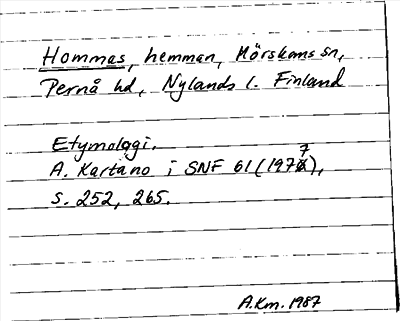 Hommas, hemman, Mörskoms sn,
Pernå hd, Nylands l. Finland
Etymologi.
A. Kartano i SNF 61 (1977),
s. 252, 265.
A.Km. 1987